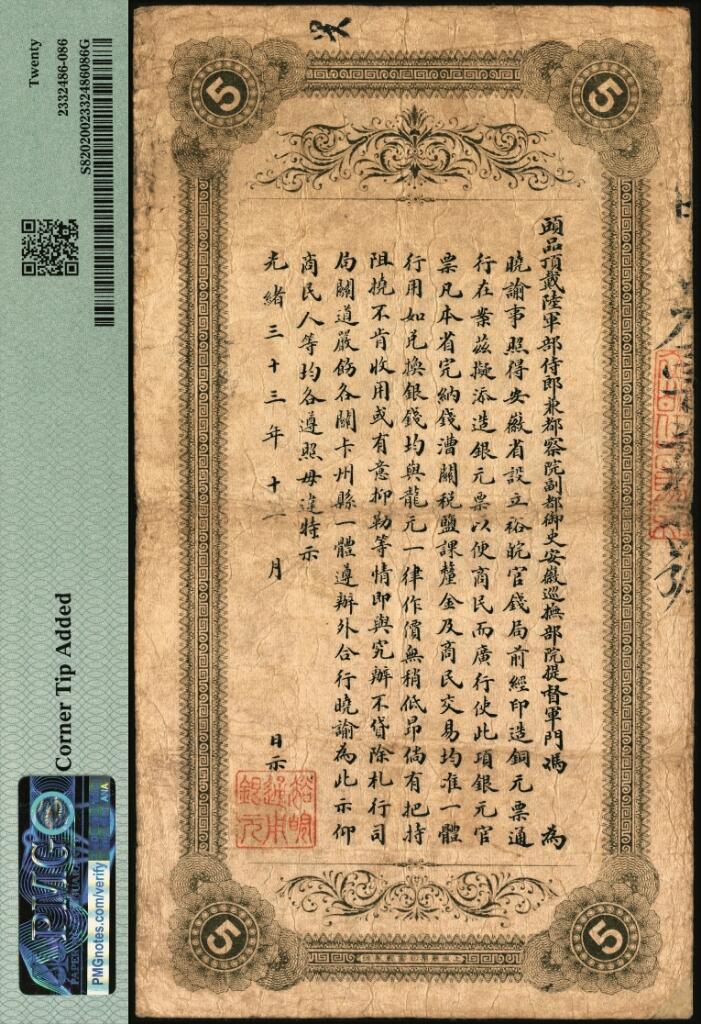 Twenty
2332486-086
S82020023324860​86G
Corner Tip Added
PMG
PAPER
ANA
PMGnotes.com/verify
5
5
頭品頂戴陸軍部侍郎兼都察院副都御史安徽巡撫部院提督軍門馮 為
曉諭事照得安徽省設立裕皖官錢局前經印造銅元票通
行在案茲擬添造銀元票以便商民而廣行使此項銀元官
票凡本省完納錢漕關稅鹽課釐金及商民交易均准一體
行用如兌換銀錢均與龍元一律作價無稍低昂倘有把持
阻撓不肯收用或有意抑勒等情即與究辦不貸除札行司
局關道嚴飭各關卡州縣一體遵辦外合行曉諭為此示仰
商民人等均各遵照毋違特示
光緒三十三年十一月 日示
裕皖
通用
銀元
5
5